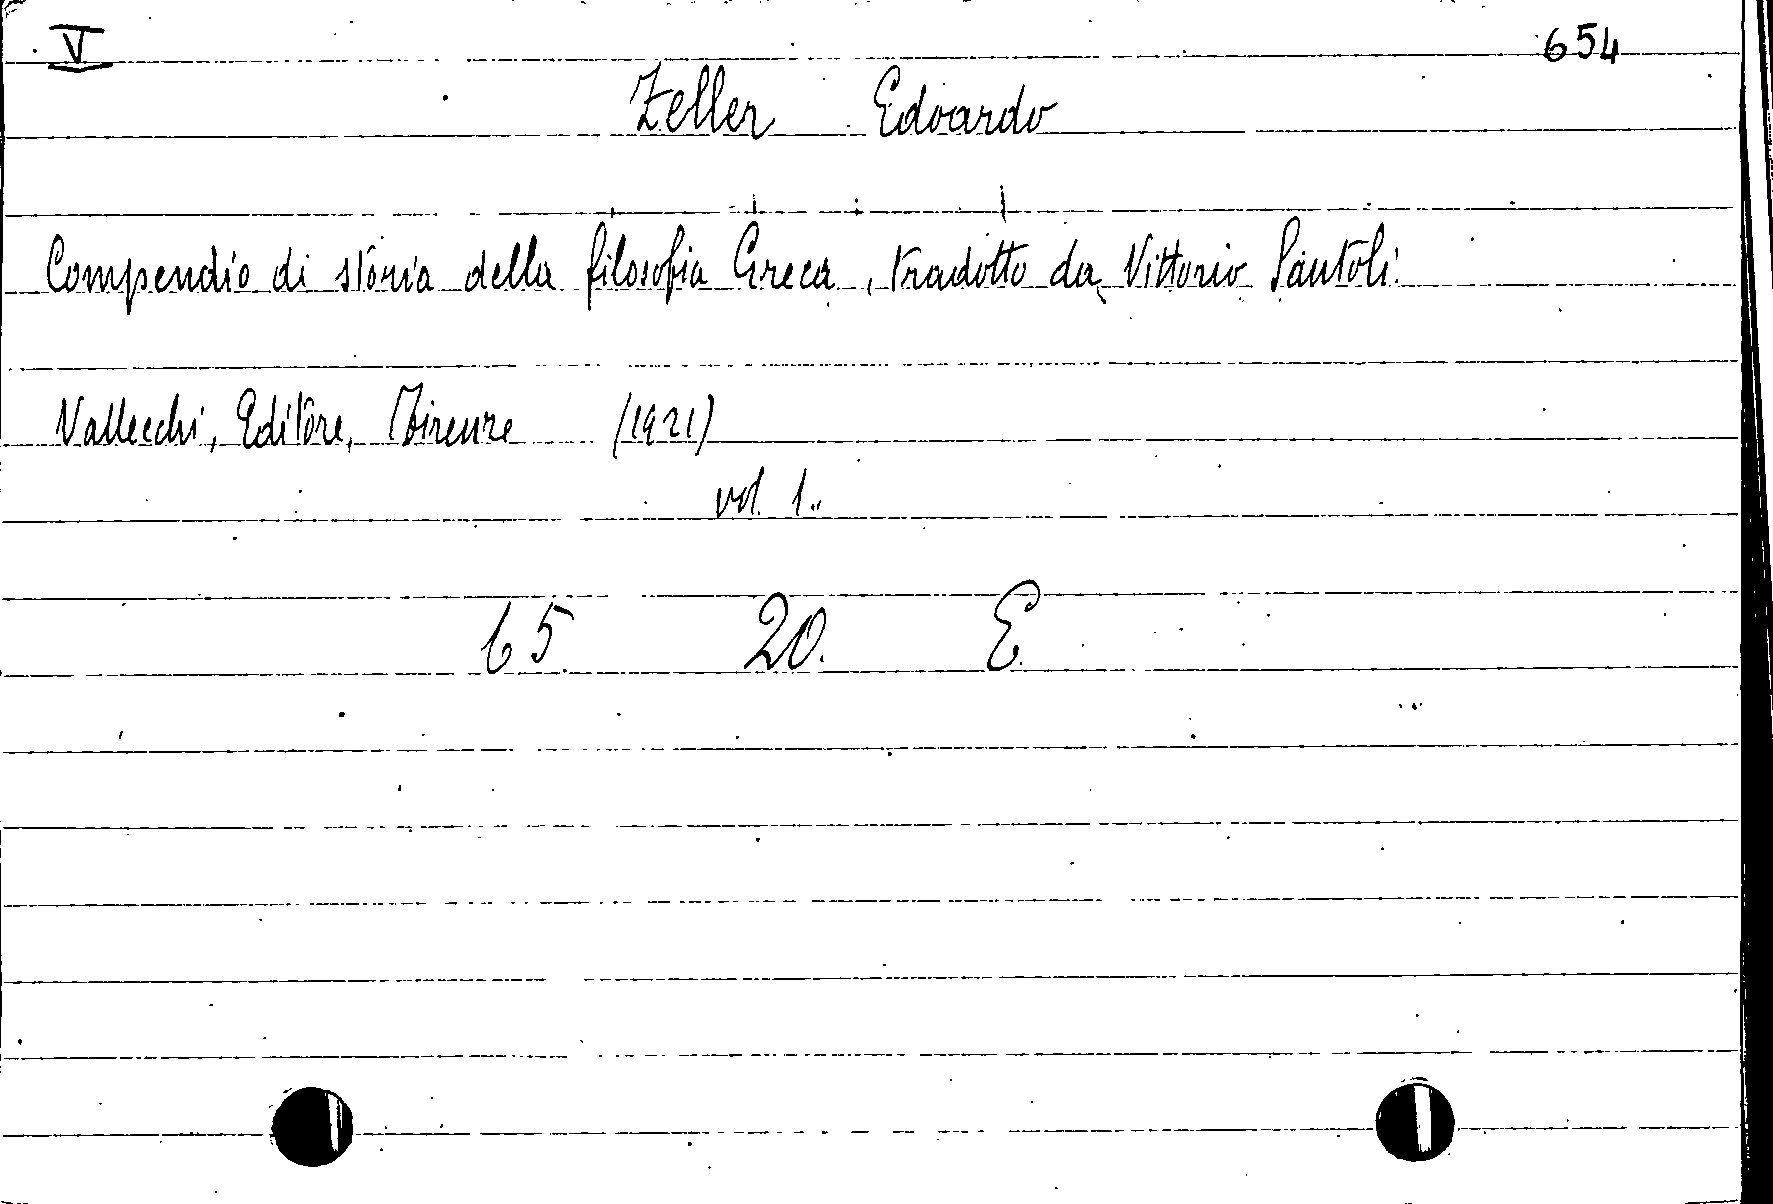 V 654
Zeller Edoardo
Compendio di storia della filosofia Greca, tradotto da Vittorio Santoli.
Vallecchi, Editore, Firenze (1921)
vol. 1..
65. 20. E.